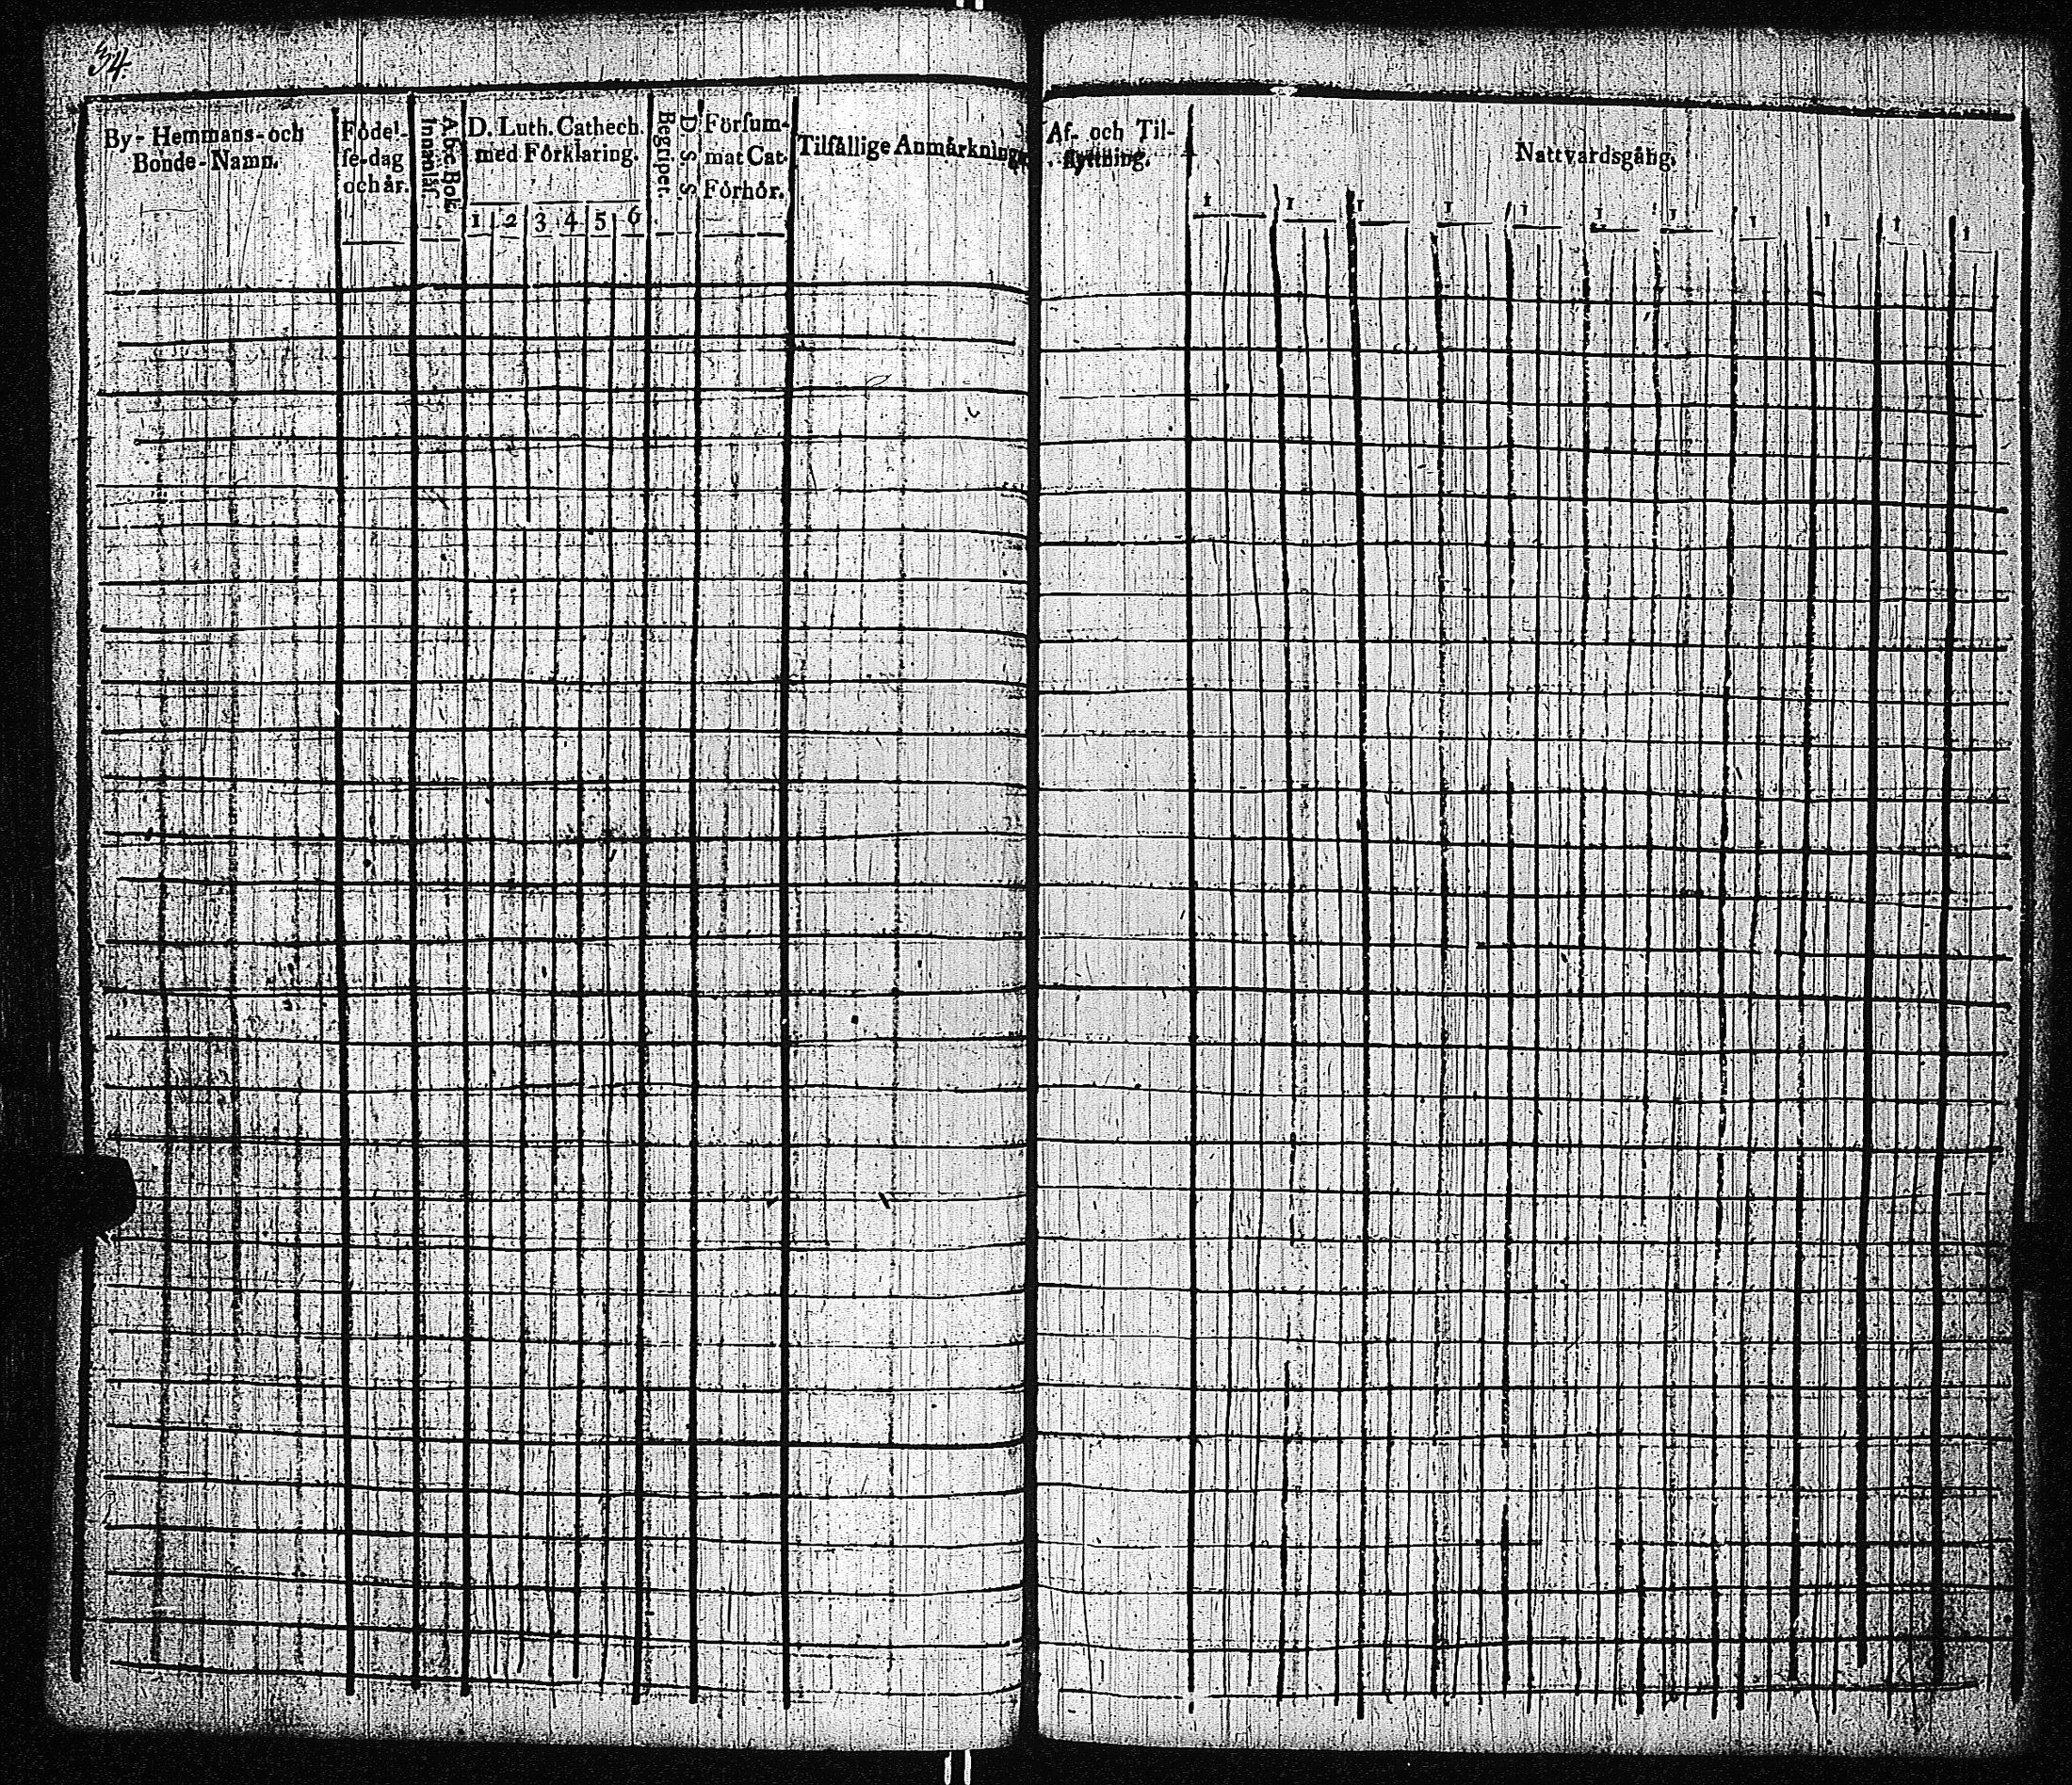 34.
By- Hemmans- och
Bonde-Namn.
Födel-
se-dag
och år.
Abc Bok.
Innanläs.
D. Luth. Cathech.
med Förklaring.
1 2 3 4 5 6
Begriper.
D. S. S.
Försum-
mat Cat.
Förhör.
Tilfällige Anmärkningar
Af- och Til-
flyttning.
Nattvardsgång.
1 1 1 1 1 1 1 1 1 1 1